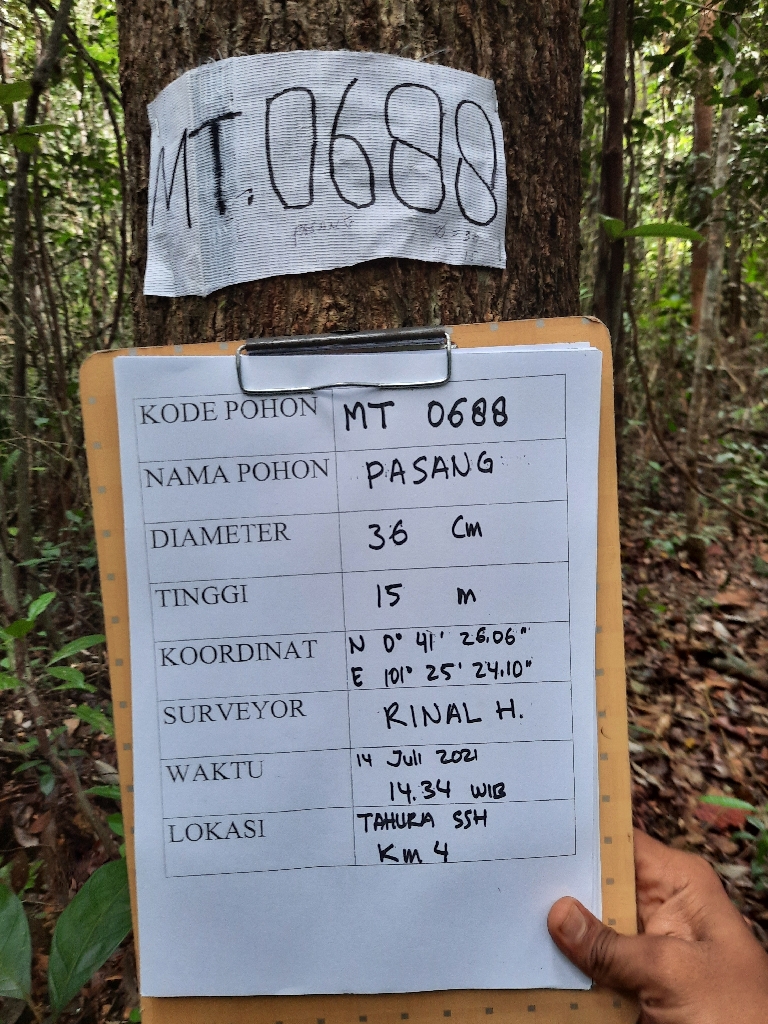 MT.0688
PASANG
KODE POHON MT 0688
NAMA POHON PASANG
DIAMETER 36 Cm
TINGGI 15 m
KOORDINAT N 0° 41' 26.06"
E 101° 25' 24.10"
SURVEYOR RINAL H.
WAKTU 14 Juli 2021
14.34 WIB
LOKASI TAHURA SSH
Km 4